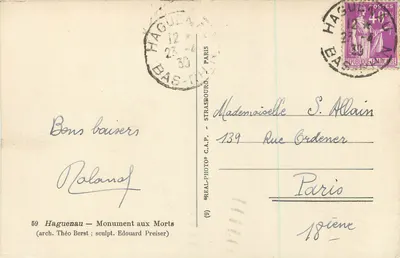 HAGUENAU
12 H
23 -4
39
BAS-RHIN
HAGUENAU
39
BAS-RHIN
POSTES
40
Bons baisers
Roland
Mademoiselle S. Allain
139 Rue Ordener
Paris
18ième
59 Haguenau — Monument aux Morts
(arch. Théo Berst ; sculpt. Edouard Preiser)
(9) "REAL-PHOTO" C.A.P. - STRASBOURG - PARIS